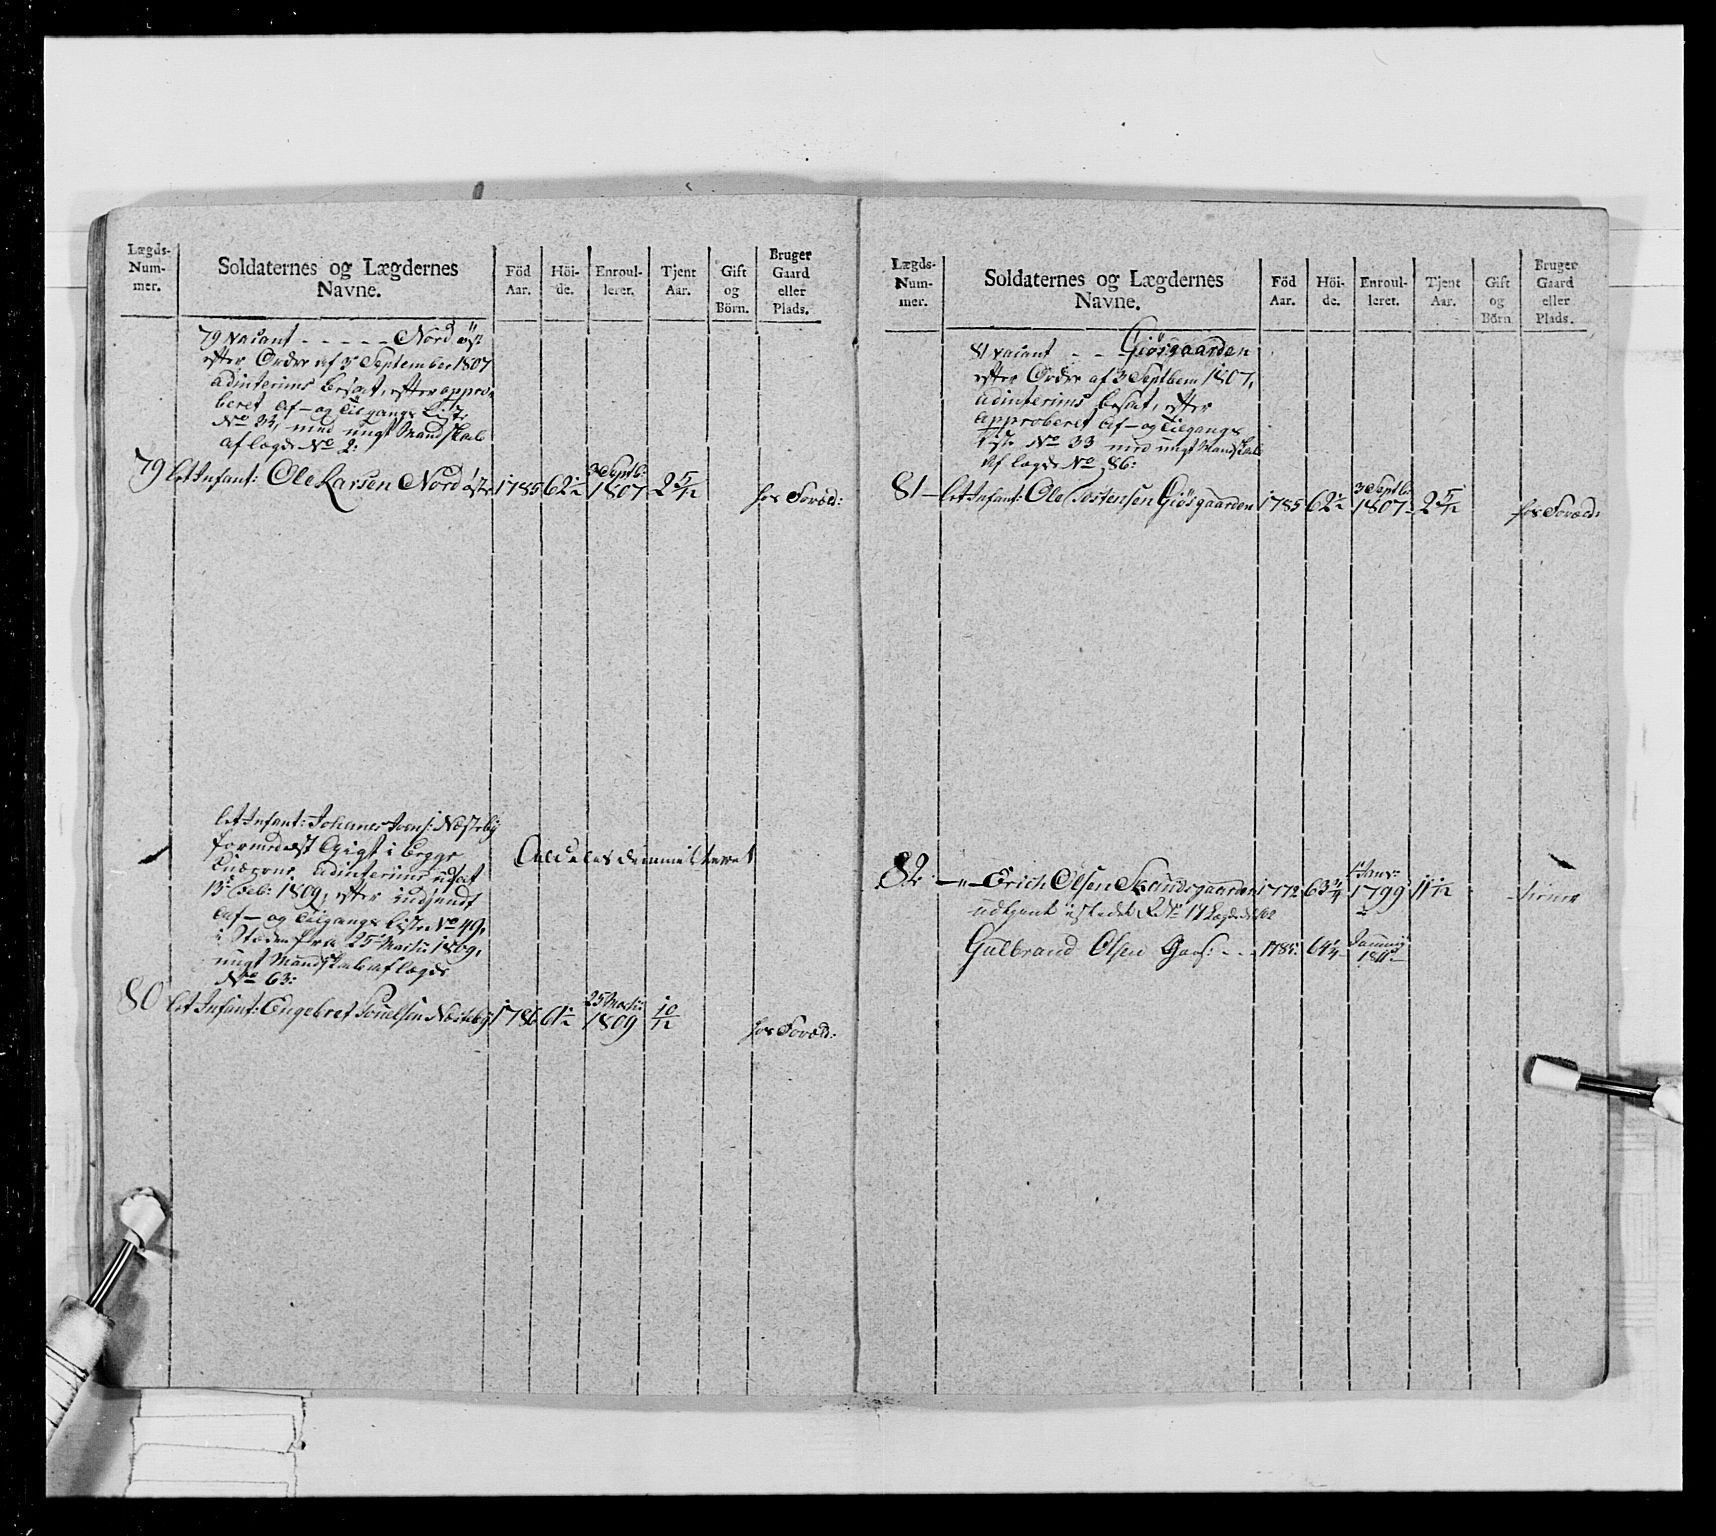 Lægds-
Num-
mer.
Soldaternes og Lægdernes
Navne.
Föd
Aar.
Höi-
de.
Enroul-
leret.
Tjent
Aar.
Gift
og
Börn.
Bruger
Gaard
eller
Plads.
79 vacant - - - - - Nord
efter Order af 3 September 1807
adinterims besat, efter appro-
beret Af- og Tilgangs Liste
No 32, med ungt Mandskab
af lægde No 2:
79 let Infant: Ole Larsen Nord 1785 62½ 3 Septb: 1807 2 5/12 hos Foræld:
let Infant: Johannes Næstebÿ
formedelst Gigt i begge
Knæerne adinterims udsat
13 Feb: 1809, efter indsendt
Af- og Tilgangs Liste No 49,
i Stæden fra 25 Martii 1809,
ungt Mandskab af lægde
No 63:
80 let Infant: Engebret Næstebÿ 1786 61½ 25 Martii 1809 10/12 hos Foræld:
Lægds-
Num-
mer.
Soldaternes og Lægdernes
Navne.
Föd
Aar.
Höi-
de.
Enroul-
leret.
Tjent
Aar.
Gift
og
Börn.
Bruger
Gaard
eller
Plads.
81 vacant - - Giösgaarden
efter Order af 3 Septbem 1807,
adinterims besat, efter
approberet Af- og Tilgangs
Liste No 33 med ungt Mandskab
af lægde No 86:
81 - let Infant: Ole Tostensen Giösgaarden 1785 62½ 3 Septb: 1807 2 5/12 hos Foræld:
82 - " - Erich Olsen 1772 63¾ 1 Janv: 1799 11 1/12 tiener
udtjent istedet No 14
Gulbrand Olsen - - 1785 64¼